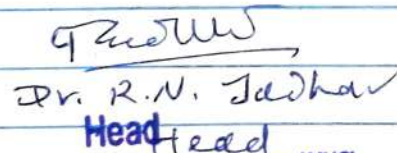 Dr. R.N. Jadhav
Head Head